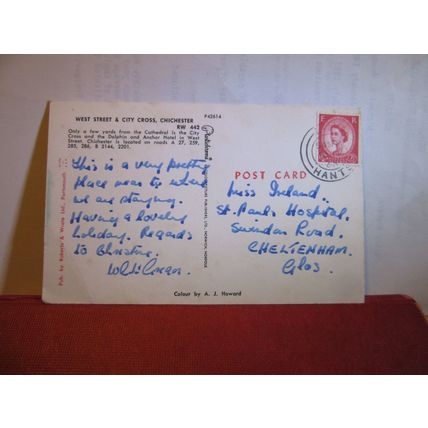 WEST STREET & CITY CROSS, CHICHESTER
RW 442
P42614
Only a few yards from the Cathedral is the City
Cross and the Dolphin and Anchor Hotel in West
Street. Chichester is located on roads A 27, 259,
285, 286, B 2146, 2201.
This is a very pretty
place near to where
we are staying.
Having a lovely
holiday. Regards
to Christine.
POST CARD
HANTS
Miss Ireland.
St. Pauls Hospital.
Swindon Road.
CHELTENHAM.
Glos.
Pub. by Roberts & Wrate Ltd., Portsmouth
Colour by A. J. Howard